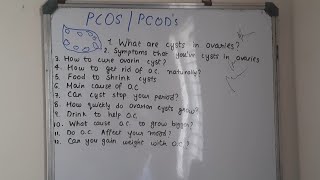 PCOS/PCOD's
1. What are cysts in ovaries?
2. Symptoms that you've cysts in ovaries
3. How to cure ovarin cyst?
4. How to get rid of O.C. naturally?
5. Food to shrink cysts
6. Main cause of O.C
7. Can cyst stop your period?
8. How quickly do ovarian cysts grow?
9. Drink to help O.C
10. What cause O.C. to grow bigger?
11. Do O.C. Affect your mood?
12. Can you gain weight with O.C.?